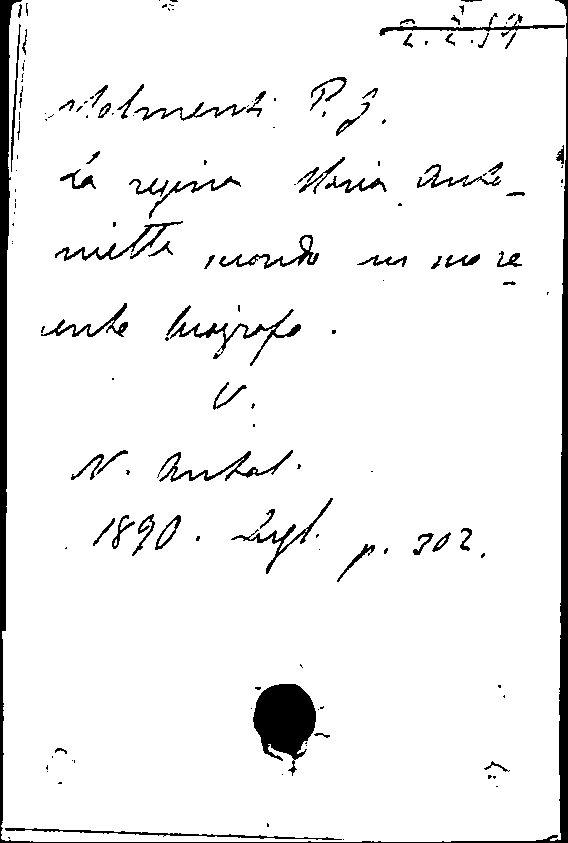 2.2.59
Molmenti P. G.
La regina Maria Anto-
nietta secondo un re-
cente biografo.
V.
N. Antol.
1890. Lugl. p. 302.